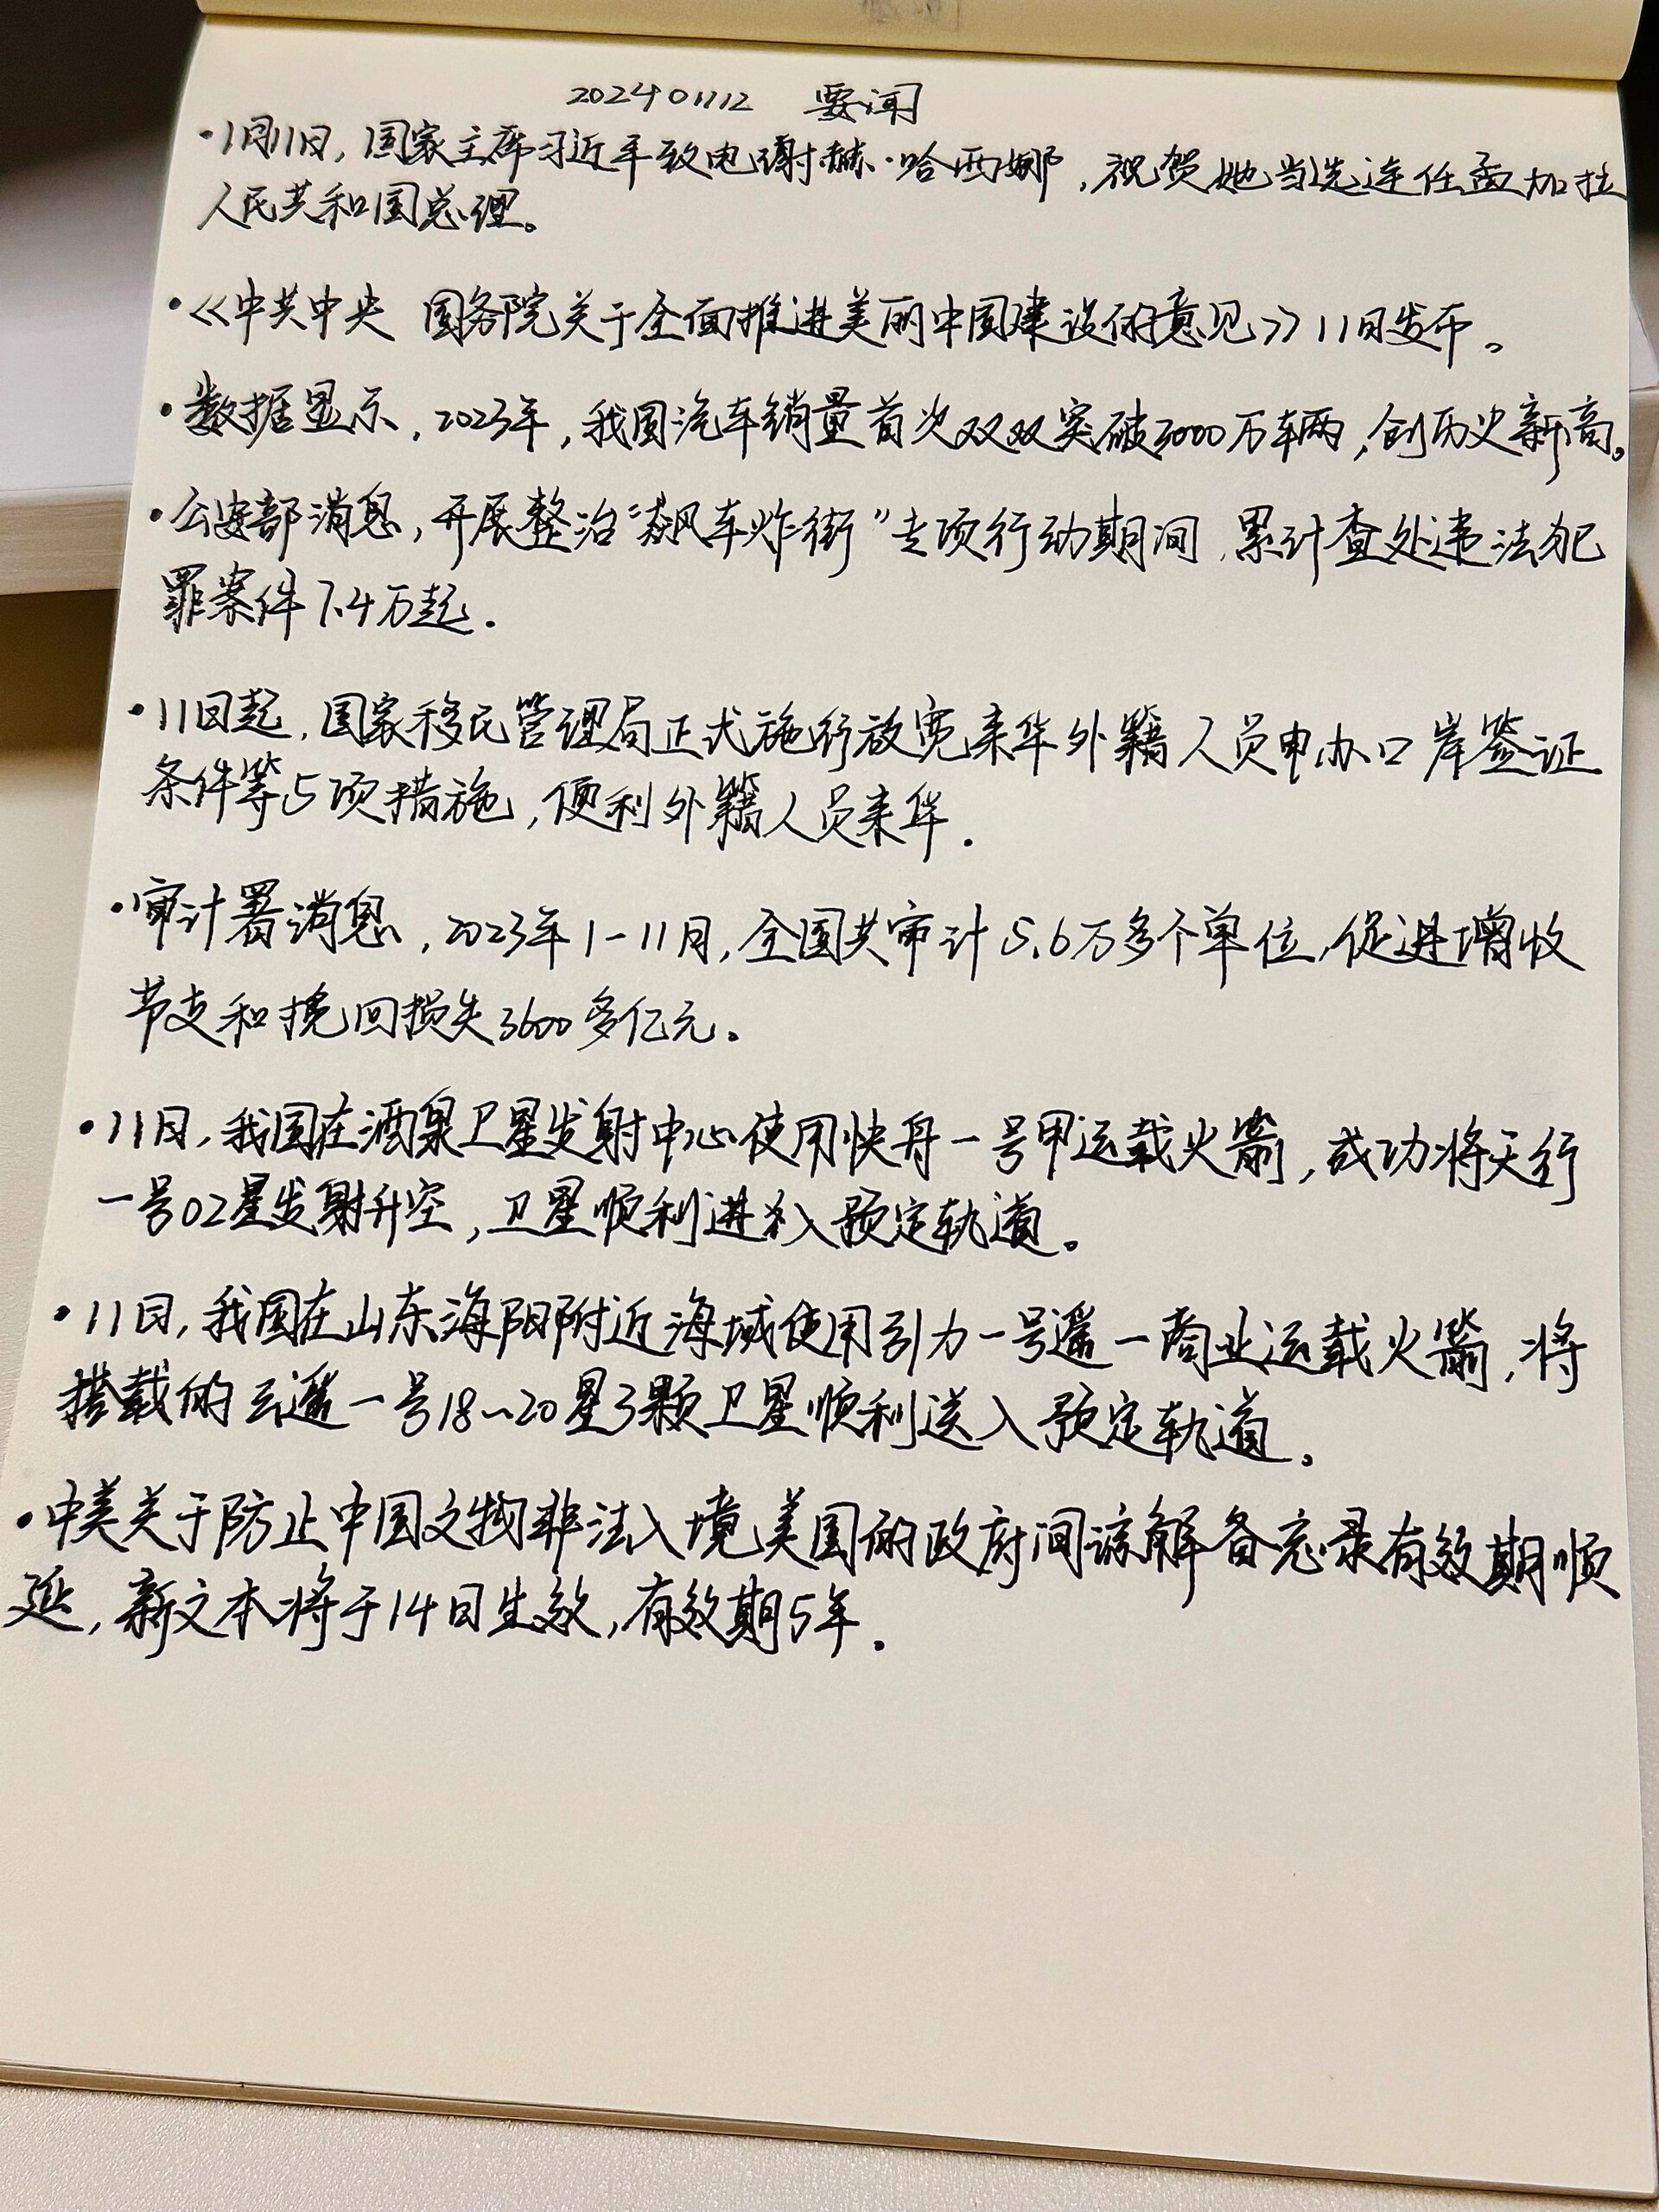 20240112 要闻
·1月11日，国家主席习近平致电谢赫·哈西娜，祝贺她当选连任孟加拉
人民共和国总理。
·《中共中央 国务院关于全面推进美丽中国建设的意见》11日发布。
·数据显示，2023年，我国汽车销量首次双双突破3000万车辆，创历史新高。
·公安部消息，开展整治“飙车炸街”专项行动期间，累计查处违法犯
罪案件7.4万起.
·11日起，国家移民管理局正式施行放宽来华外籍人员申办口岸签证
条件等5项措施，便利外籍人员来华.
·审计署消息，2023年1-11月，全国共审计5.6万多个单位，促进增收
节支和挽回损失3600多亿元。
·11日，我国在酒泉卫星发射中心使用快舟一号甲运载火箭，成功将天行
一号02星发射升空，卫星顺利进入预定轨道。
·11日，我国在山东海阳附近海域使用引力一号遥一商业运载火箭，将
搭载的云遥一号18~20星3颗卫星顺利送入预定轨道。
·中美关于防止中国文物非法入境美国的政府间谅解备忘录有效期顺
延，新文本将于14日生效，有效期5年.